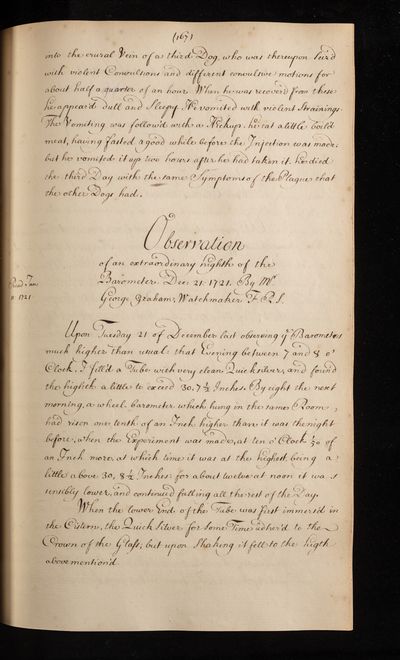 (167)
into the crural Vein of a third Dog, who was thereupon seiz'd
with violent Convulsions and different convulsive motions for
about half a quarter of an hour. When he was recover'd from these
he appear'd Dull and Sleepy. He vomited with violent Strainings.
The Vomiting was follow'd with a Hickup: he eat a little boild
meat, having fasted a good while before the Injection was made:
but he vomited it up two hours after he had taken it. he died
the third Day with the same Symptoms of the Plague that
the other Dogs had.
Observation
of an extraordinary highth of the
Barometer. Dec. 21. 1721. By Mr.
George Graham, Watchmaker. F.R.S.
Read Jan:
1721
Upon Tuesday 21 of December last observing ye Barometers
much higher than usual: that Evening between 7 and 8 o'
Clock, I fill'd a Tube with very clean Quicksilver, and found
the highth a little to exceed 30.7½ Inches. By eight the next
morning, a wheel barometer which hung in the same Room,
had risen one tenth of an Inch higher than it was the night
before, when the Experiment was made, at ten o' Clock 1/20 of
an Inch more, at which time it was at the highest, being a
little above 30, 8½ Inches: for about twelve at noon it was
sensibly lower, and continued falling all the rest of the Day.
When the lower End of the Tube was first immers'd in
the Cistern, the Quick Silver for some Time adher'd to the
Crown of the Glass; but upon Shaking it fell to the higth
above mention'd